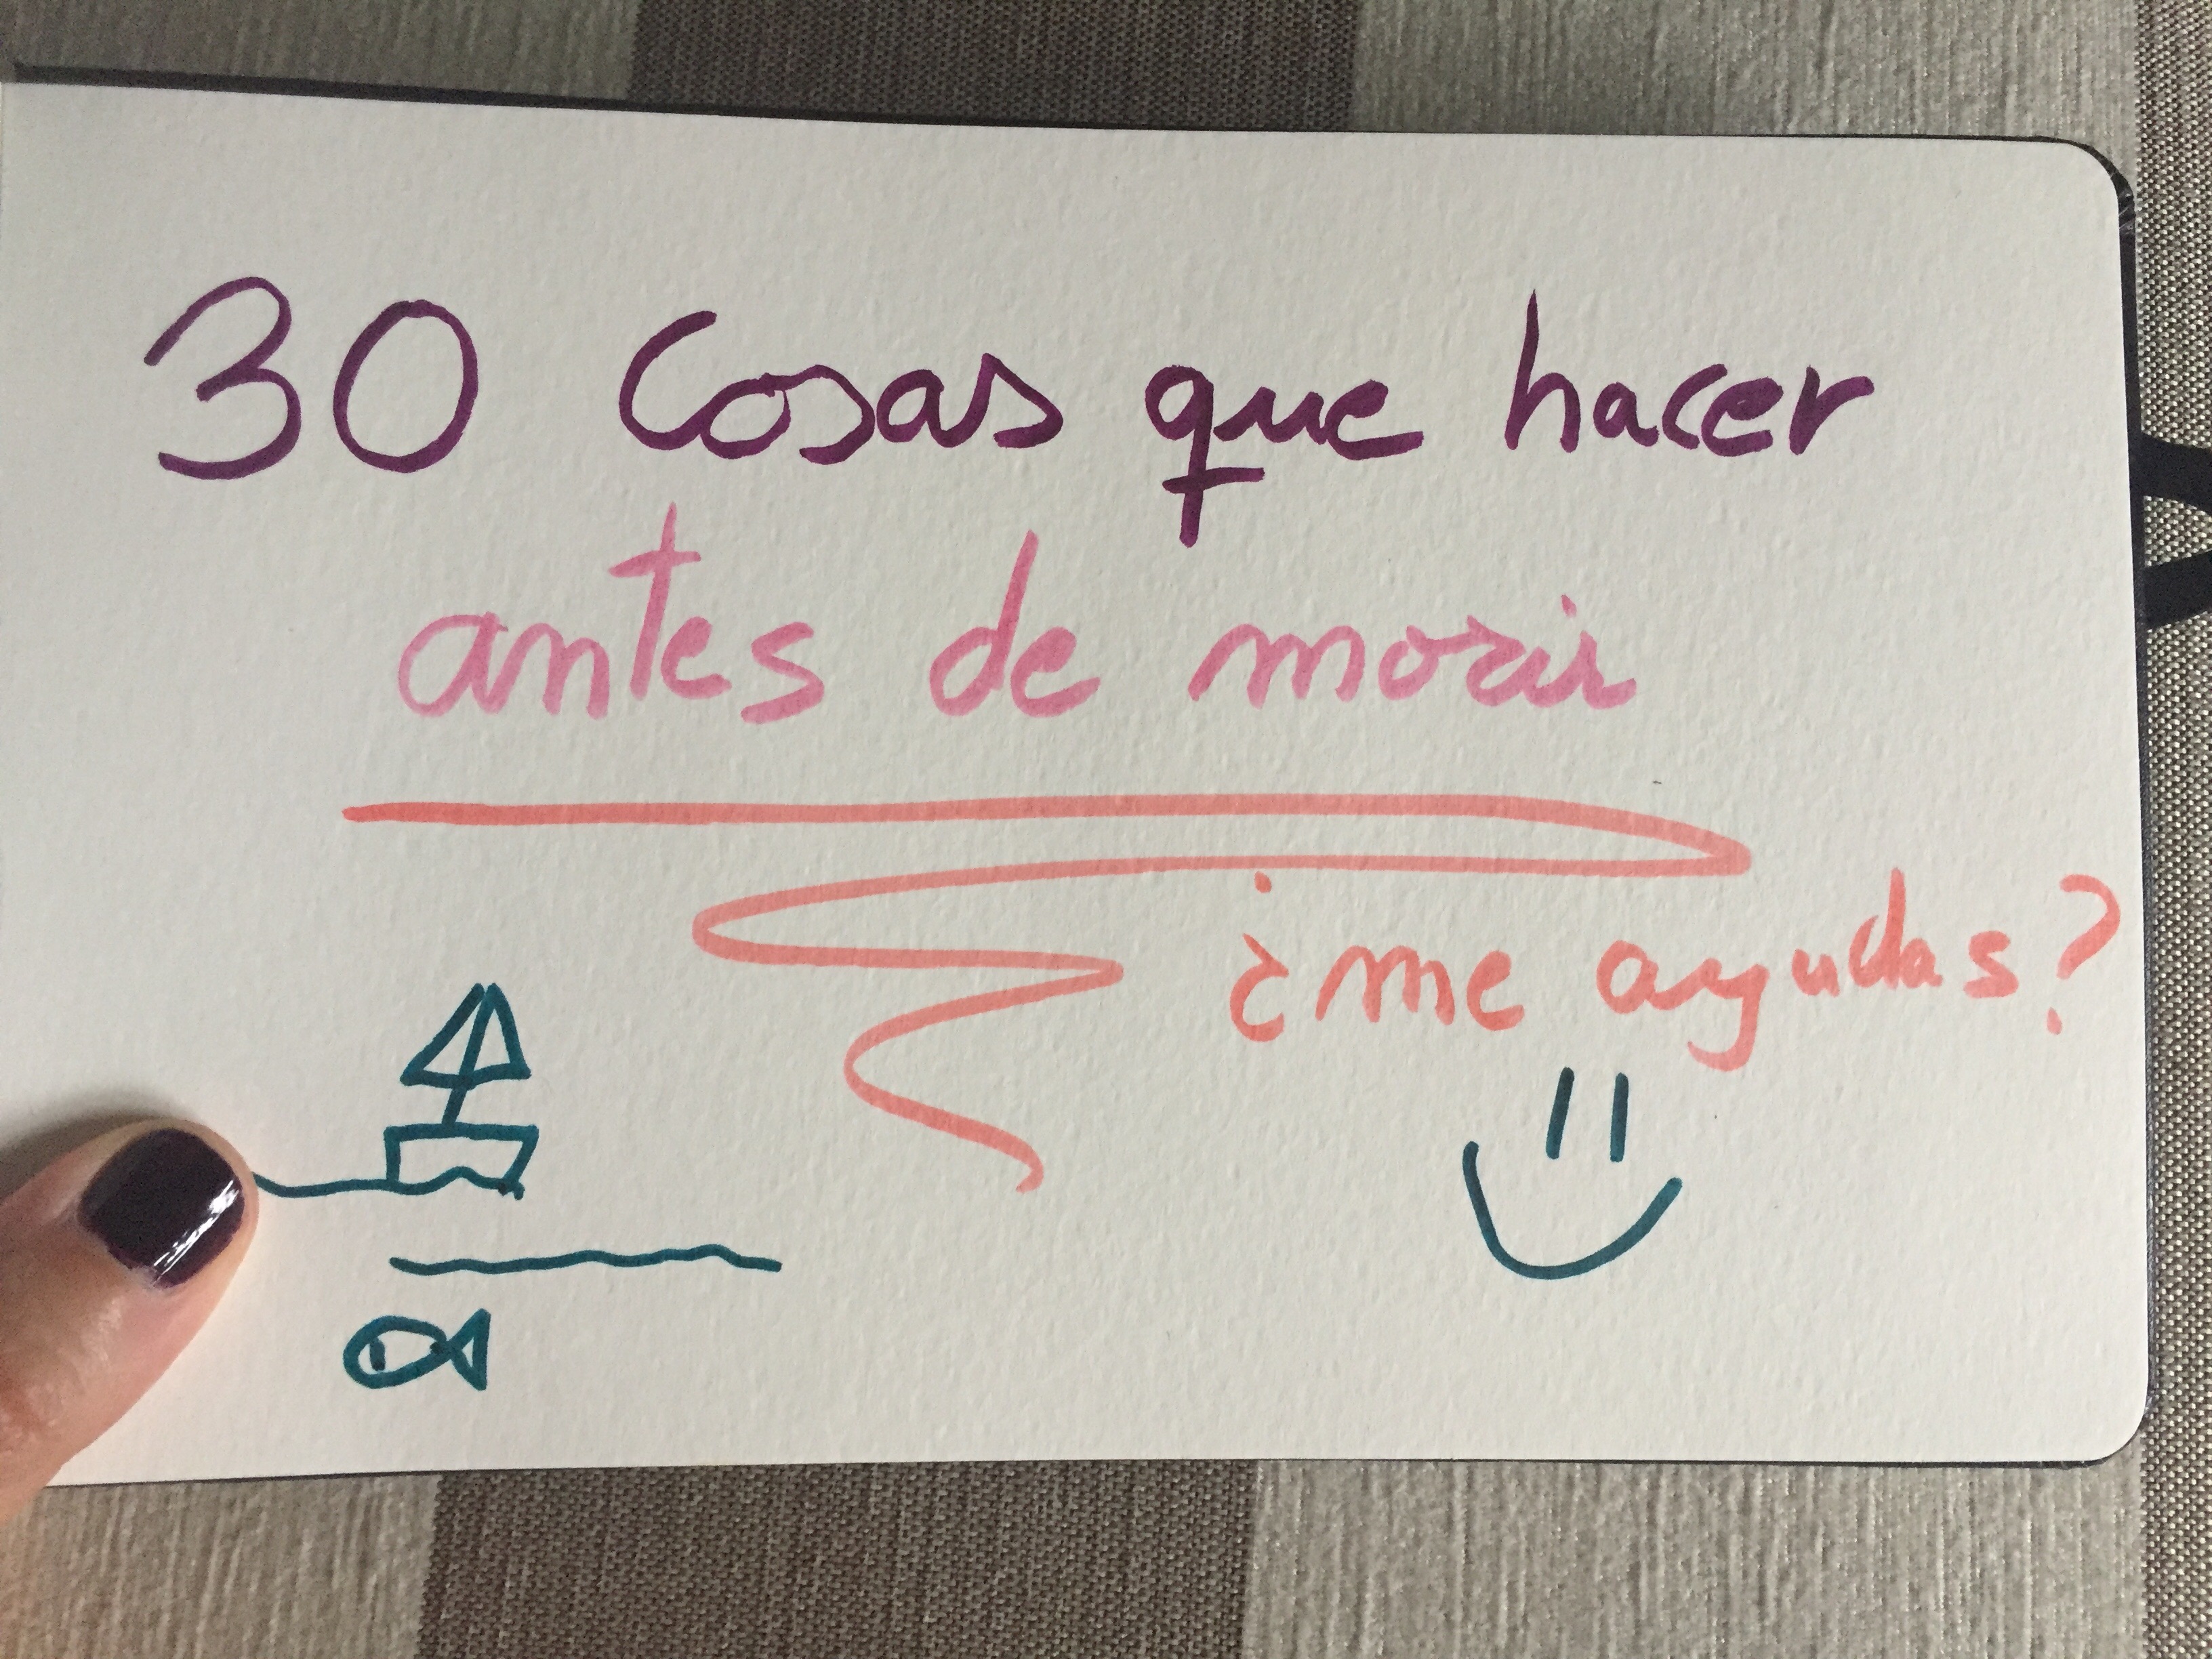 30 Cosas que hacer
antes de morir
¿me ayudas?